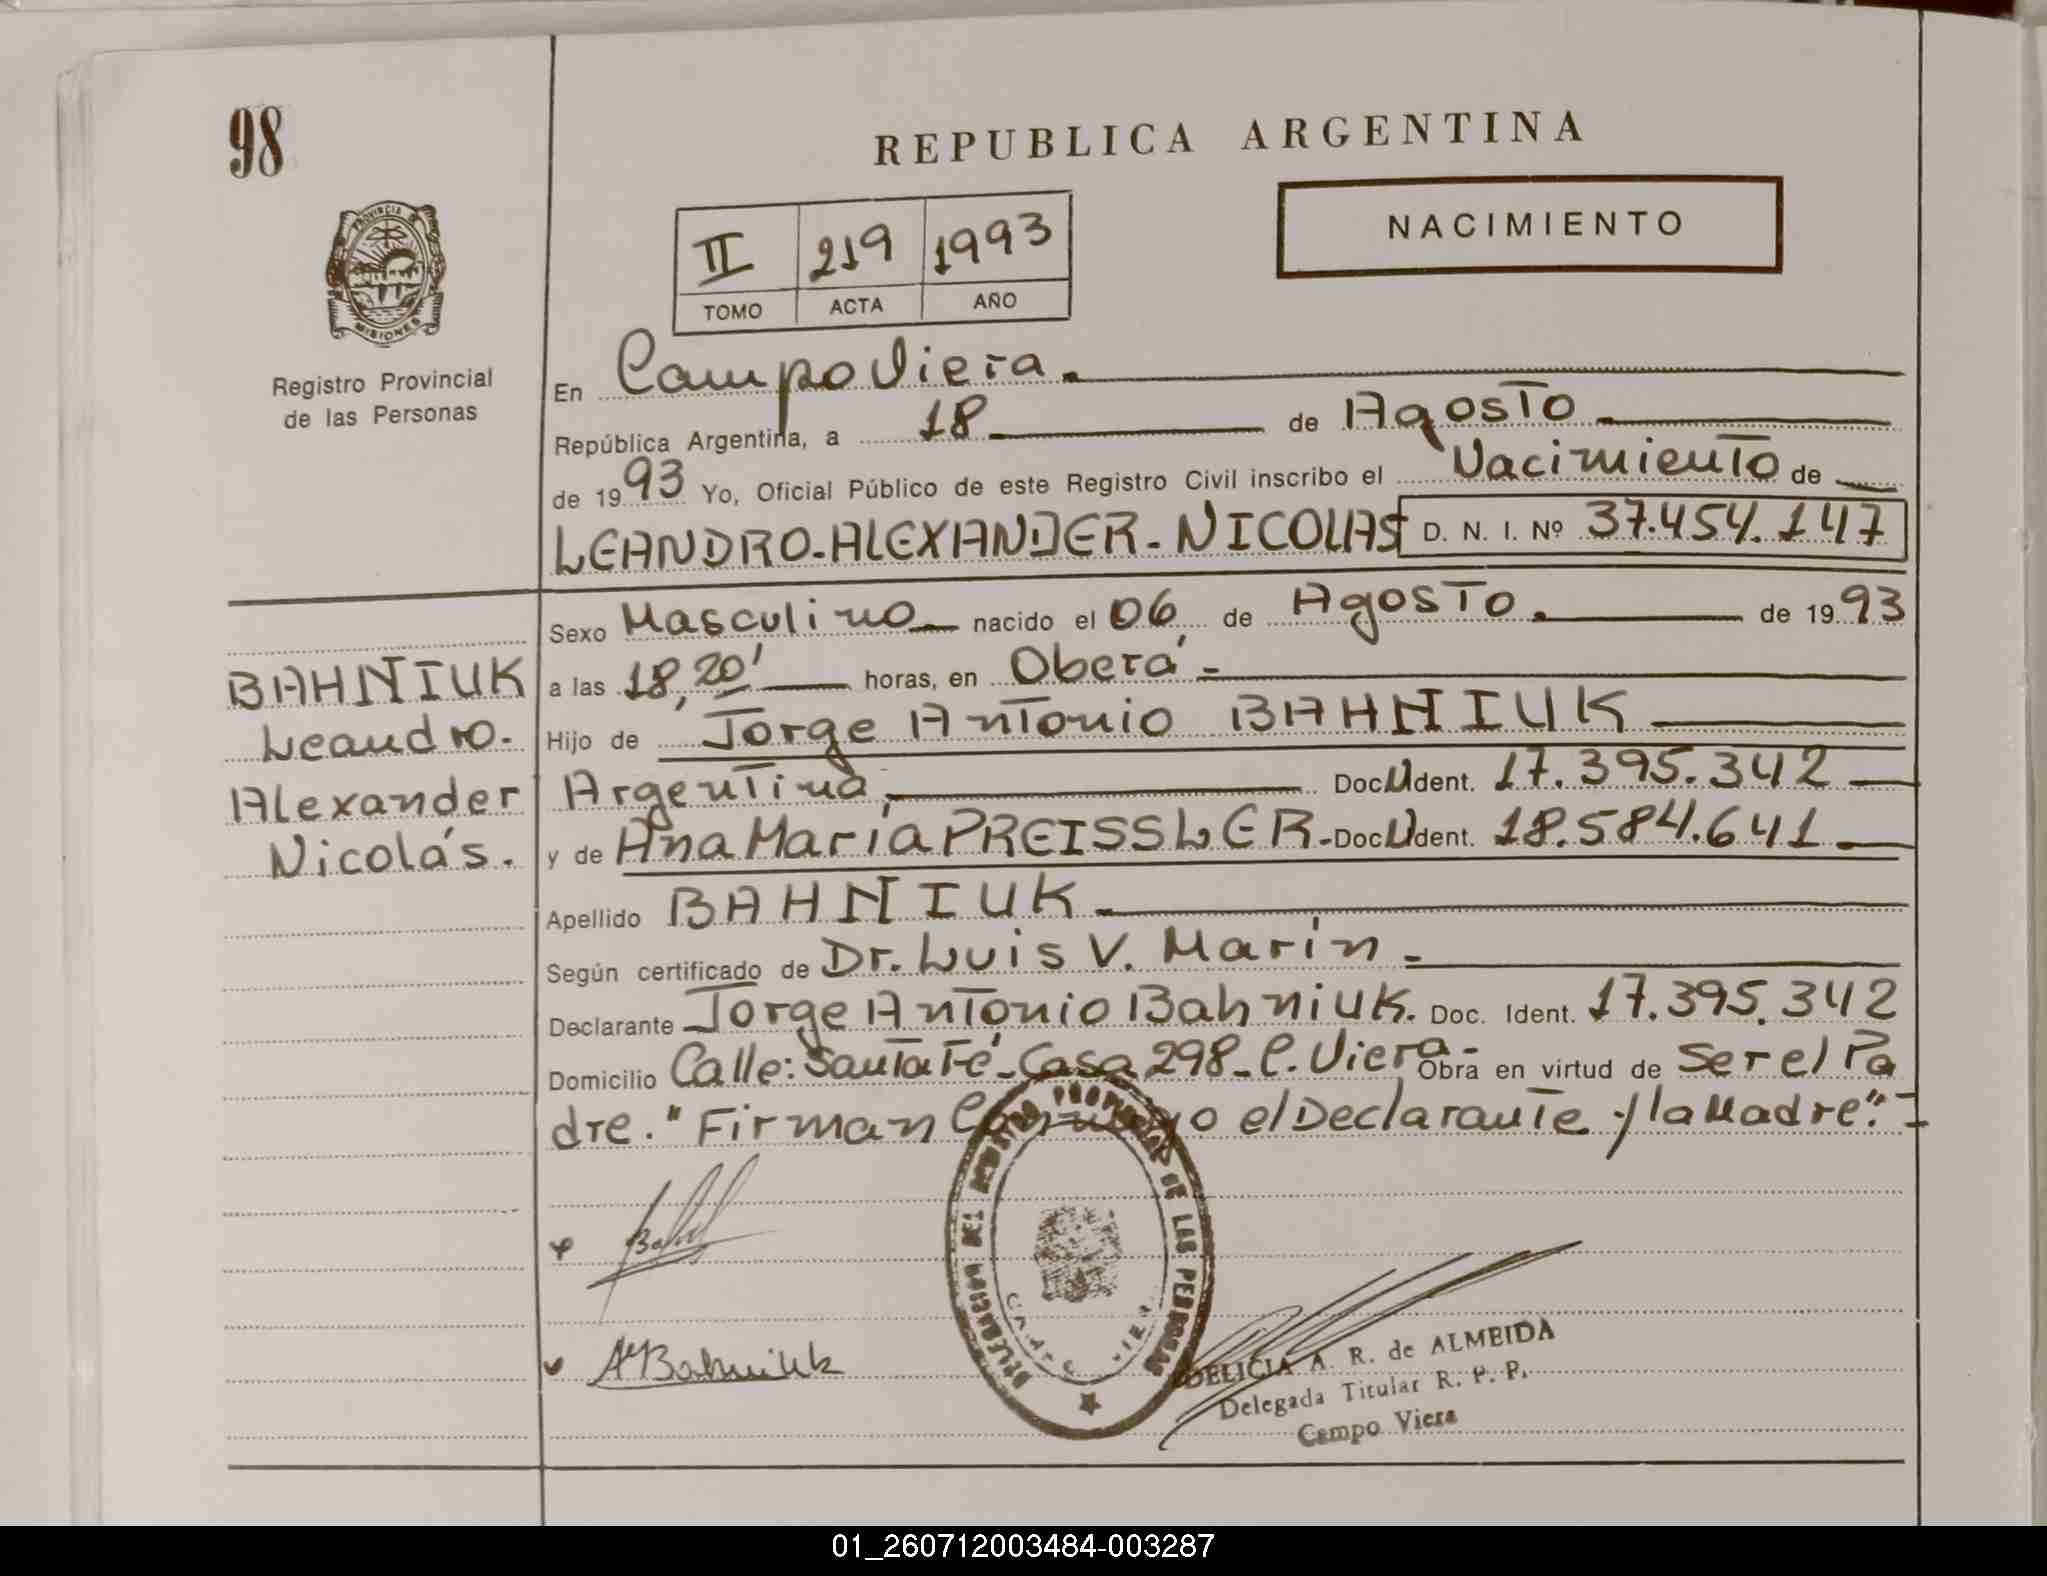 98
REPUBLICA ARGENTINA
PROVINCIA DE
MISIONES
Registro Provincial
de las Personas
II 219 1993
TOMO ACTA AÑO
NACIMIENTO
En Campo Viera.
República Argentina, a 18 de Agosto
de 1993 Yo, Oficial Público de este Registro Civil inscribo el Nacimiento de
LEANDRO-ALEXANDER-NICOLAS D. N. I. Nº 37.454.147
Sexo Masculino nacido el 06 de Agosto. de 1993
a las 18,20' horas, en Oberá-
Hijo de Jorge Antonio BAHNIUK
Argentina, Doc U Ident. 17.395.342
y de Ana María PREISSLER- Doc U Ident. 18.584.641
Apellido BAHNIUK
Según certificado de Dr. Luis V. Marín
Declarante Jorge Antonio Bahniuk. Doc. Ident. 17.395.342
Domicilio Calle: Santa Fé-Casa 298-C. Viera- Obra en virtud de Ser el Pa
dre. "Firman el Declarante y la Madre".-
BAHNIUK
Leandro.
Alexander
Nicolás.
ABahniuk
DELEGACION DEL REGISTRO PROVINCIAL DE LAS PERSONAS
CAMPO VIERA
DELICIA A. R. de ALMEIDA
Delegada Titular R. P. P.
Campo Viera
01_260712003484-003287